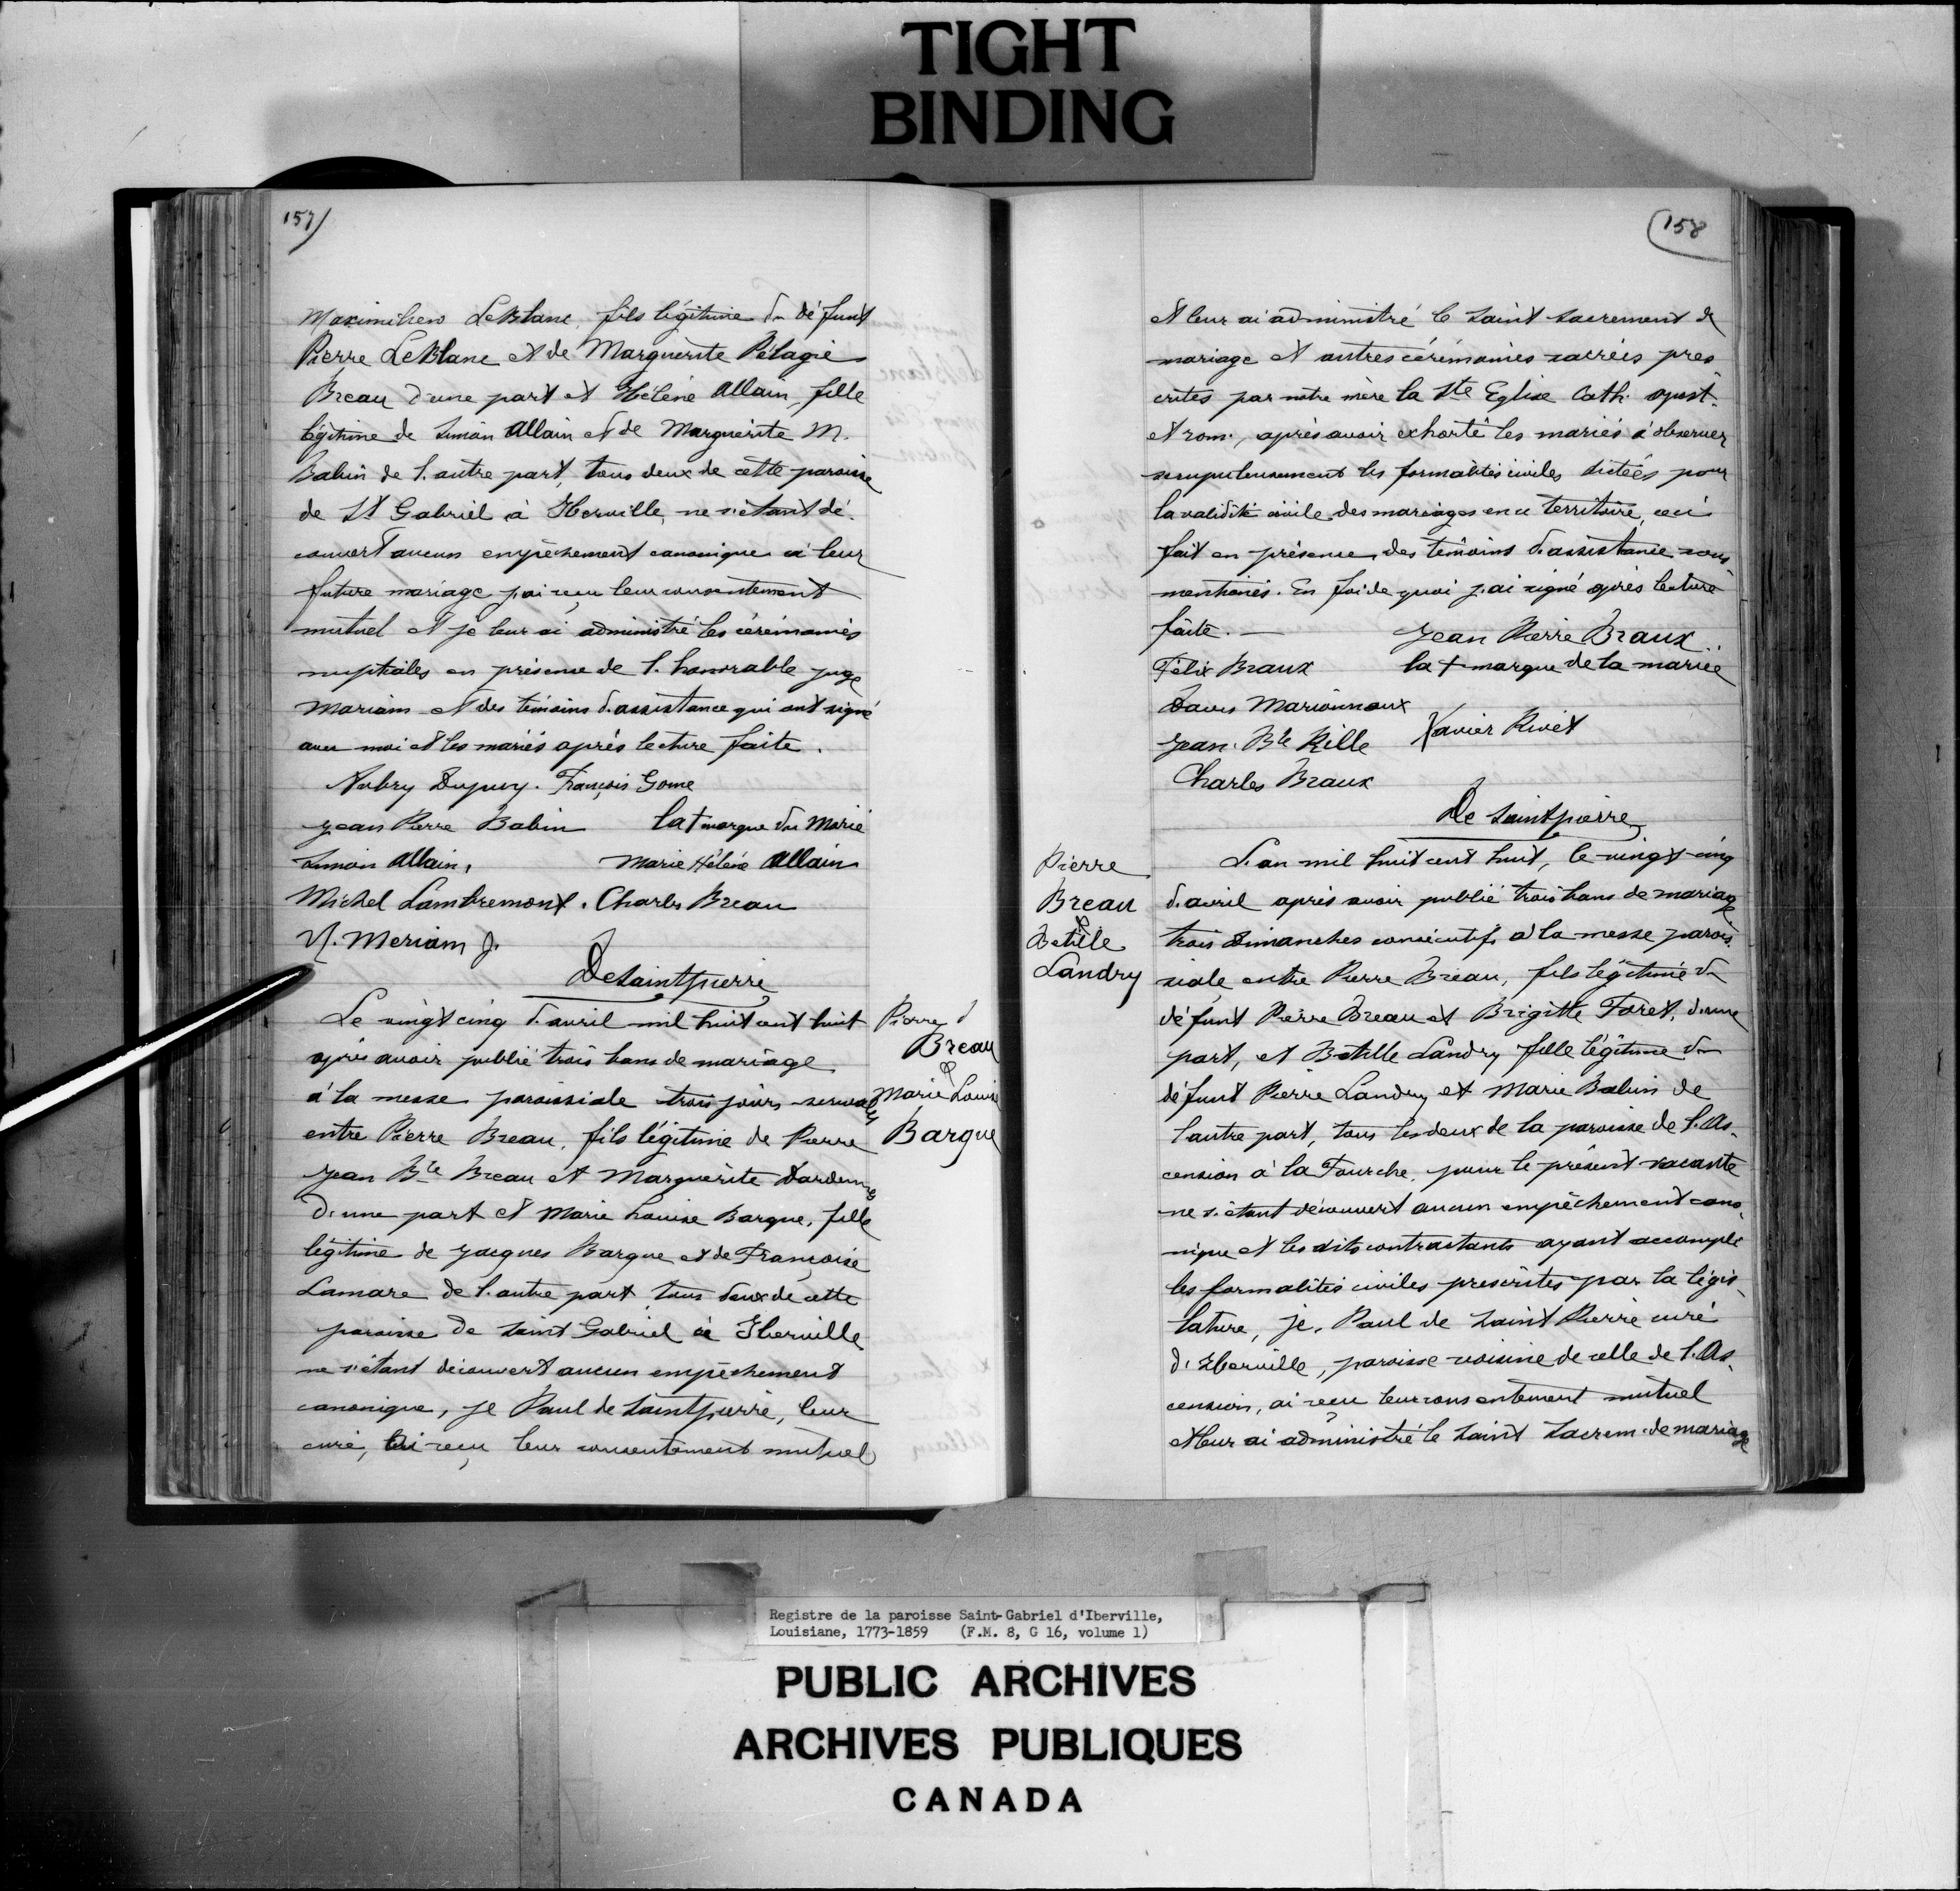 TIGHT
BINDING
157)
Maximilien LeBlanc, fils légitime du défunt
Pierre LeBlanc et de Marguerite Pélagie
Breau d'une part et Hélène Allain, fille
légitime de Simon Allain et de Marguerite M.
Babin de l'autre part, tous deux de cette paroisse
de St Gabriel à Iberville, ne s'étant dé-
couvert aucun empêchement canonique à leur
future mariage j'ai reçu leur consentement
mutuel et je leur ai administré les cérémonies
nuptiales en présence de l'honorable juge
Mariam et des témoins d'assistance qui ont signé
avec moi et les mariés après lecture faite.
Aubry Dupuy. François Gome
Jean Pierre Babin la + marque du Marié
Simon Allain, Marie Hélène Allain
Michel Lambremont. Charles Breau
N. Meriam J.
DeSaintpierre
Le vingt cinq d'avril mil huit cent huit
après avoir publié trois bans de mariage
à la messe paroissiale trois jours
entre Pierre Breau, fils légitime de Pierre
Jean Bte Breau et Marguerite Dardenne
d'une part et Marie Louise Bargue, fille
légitime de Jacques Bargue et de Françoise
Lamare de l'autre part tous deux de cette
paroisse de Saint Gabriel à Iberville
ne s'étant découvert aucun empêchement
canonique, je Paul de Saintpierre, leur
curé, ai reçu leur consentement mutuel
Pierre
Breau
&
Marie Louise
Bargue
(158
et leur ai administré le Saint Sacrement de
mariage et autres cérémonies sacrées pres
crites par notre mère la Ste Eglise Cath. apost.
et rom., après avoir exhorté les mariés à observer
scrupuleusement les formalités civiles dictées pour
la validité civile des mariages en ce territoire, ceci
fait en présence des témoins d'assistance sous
mentionés. En foi de quoi j'ai signé après lecture
faite. — Jean Pierre Braux
Félix Braux la + marque de la mariée
Marionnaux
Jean Bte Rille Xavier Rivet
Charles Braux
De Saintpierre
Pierre
Breau
&
Batille
Landry
L'an mil huit cent huit, le vingt-cinq
d'avril après avoir publié trois bans de mariage
trois dimanches consécutifs à la messe parois-
siale entre Pierre Breau, fils légitime du
défunt Pierre Breau et Brigitte Foret, d'une
part, et Batille Landry fille légitime du
défunt Pierre Landry et Marie Babin de
l'autre part, tous les deux de la paroisse de l'As-
cension à la Fourche, pour le présent vacante
ne s'étant découvert aucun empêchement cano-
nique et les dits contractants ayant accompli
les formalités civiles prescrites par la légis-
lature, je, Paul de Saint Pierre curé
d'Iberville, paroisse voisine de celle de l'As-
cension, ai reçu leur consentement mutuel
et leur ai administré le Saint Sacrem. de mariage
Registre de la paroisse Saint-Gabriel d'Iberville,
Louisiane, 1773-1859 (F.M. 8, G 16, volume 1)
PUBLIC ARCHIVES
ARCHIVES PUBLIQUES
CANADA